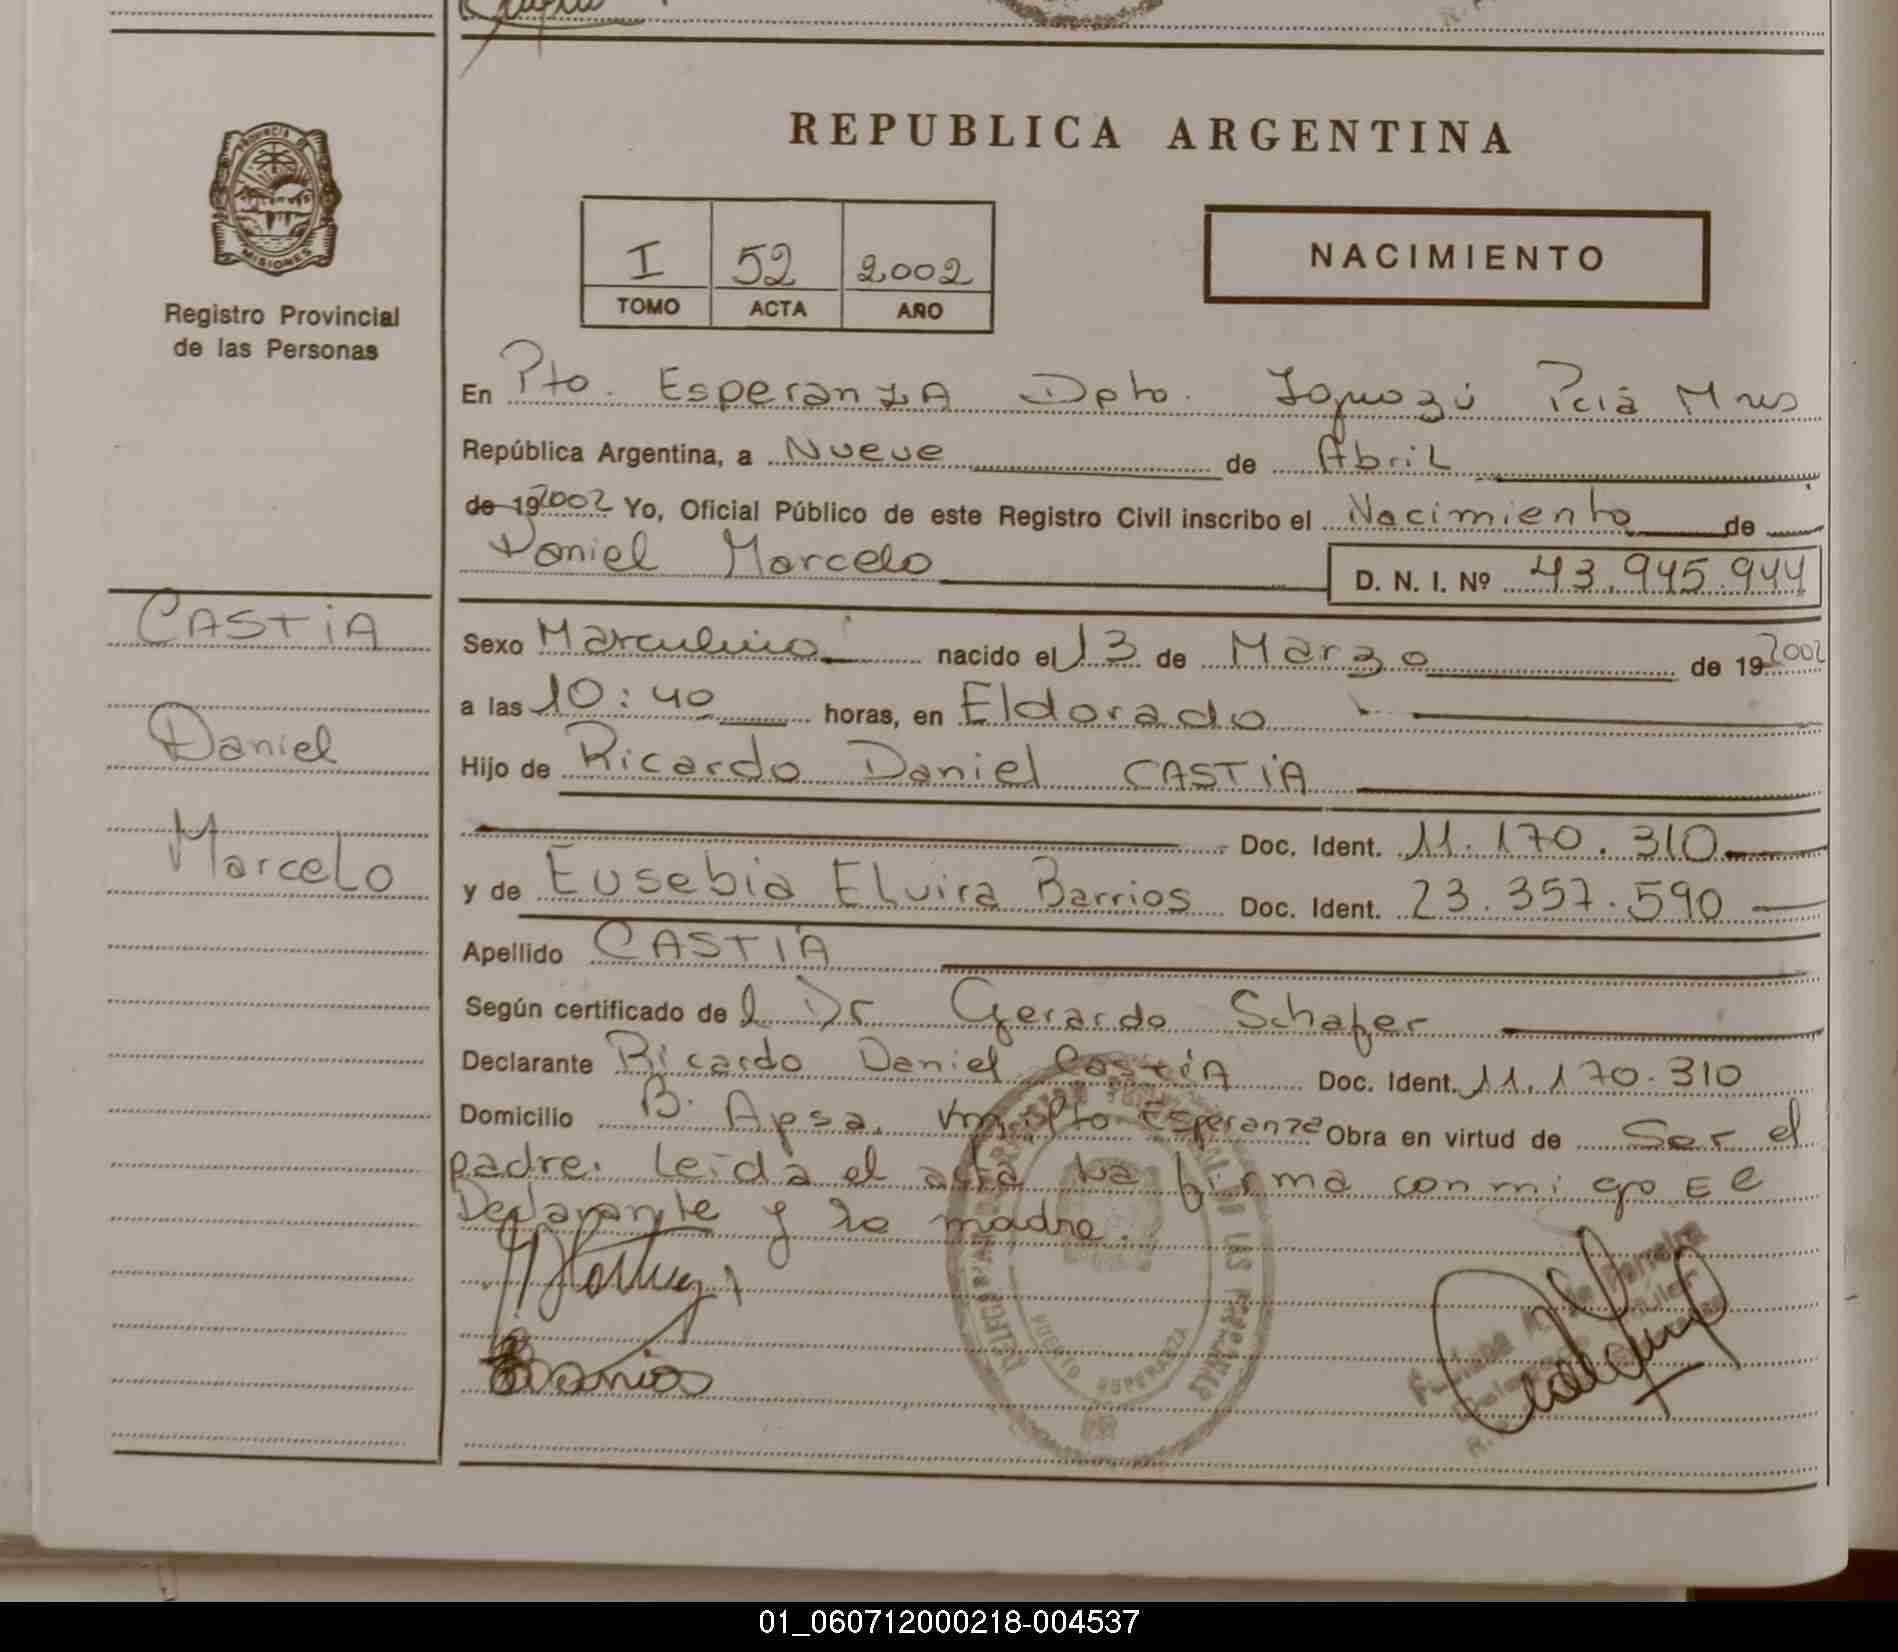 REPUBLICA ARGENTINA
PROVINCIA DE
MISIONES
Registro Provincial
de las Personas
I 52 2002
TOMO ACTA AÑO
NACIMIENTO
En Pto. Esperanza Dpto. Iguazú Pcia Mnes
República Argentina, a Nueve de Abril
de 19 2002 Yo, Oficial Público de este Registro Civil inscribo el Nacimiento de
Daniel Marcelo
D. N. I. Nº 43.945.944
CASTíA
Daniel
Marcelo
Sexo Masculino nacido el 13 de Marzo de 19 2002
a las 10:40 horas, en Eldorado
Hijo de Ricardo Daniel CASTíA
Doc. Ident. 11.170.310
y de Eusebia Elvira Barrios Doc. Ident. 23.357.590
Apellido CASTíA
Según certificado de l Dr Gerardo Schafer
Declarante Ricardo Daniel CastíA Doc. Ident. 11.170.310
Domicilio B. Apsa. Pto Esperanza Obra en virtud de Ser el
padre. Leida el acta la firma conmigo El
Declarante y la madre.
Barrios
PUERTO ESPERANZA
01_060712000218-004537